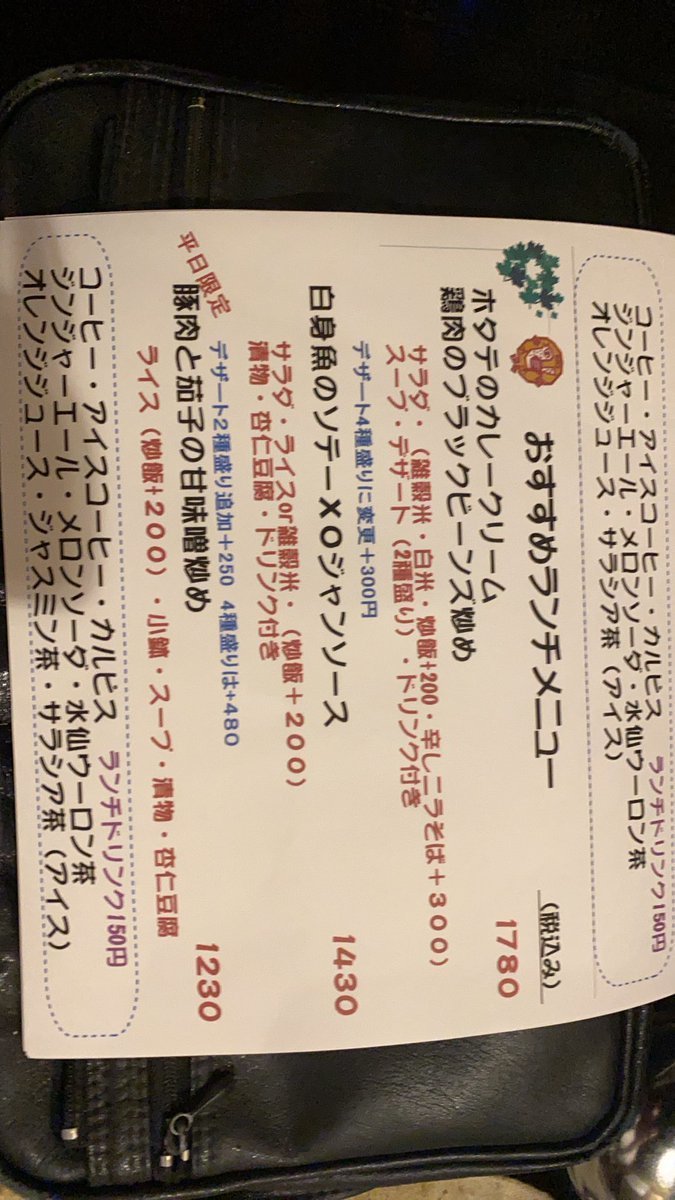 コーヒー・アイスコーヒー・カルピス ランチドリンク150円
ジンジャーエール・メロンソーダ・水仙ウーロン茶
オレンジジュース・サラシア茶(アイス)
おすすめランチメニュー (税込み)
ホタテのカレークリーム 1780
鶏肉のブラックビーンズ炒め
サラダ・(雑穀米・白米・炒飯+200・辛しニラそば+300)
スープ・デザート(2種盛り)・ドリンク付き
デザート4種盛りに変更+300円
白身魚のソテーXOジャンソース 1430
サラダ・ライスor雑穀米・(炒飯+200)
漬物・杏仁豆腐・ドリンク付き
デザート2種盛り追加+250 4種盛りは+480
平日限定
豚肉と茄子の甘味噌炒め 1230
ライス(炒飯+200)・小鉢・スープ・漬物・杏仁豆腐
コーヒー・アイスコーヒー・カルピス ランチドリンク150円
ジンジャーエール・メロンソーダ・水仙ウーロン茶
オレンジジュース・ジャスミン茶・サラシア茶(アイス)